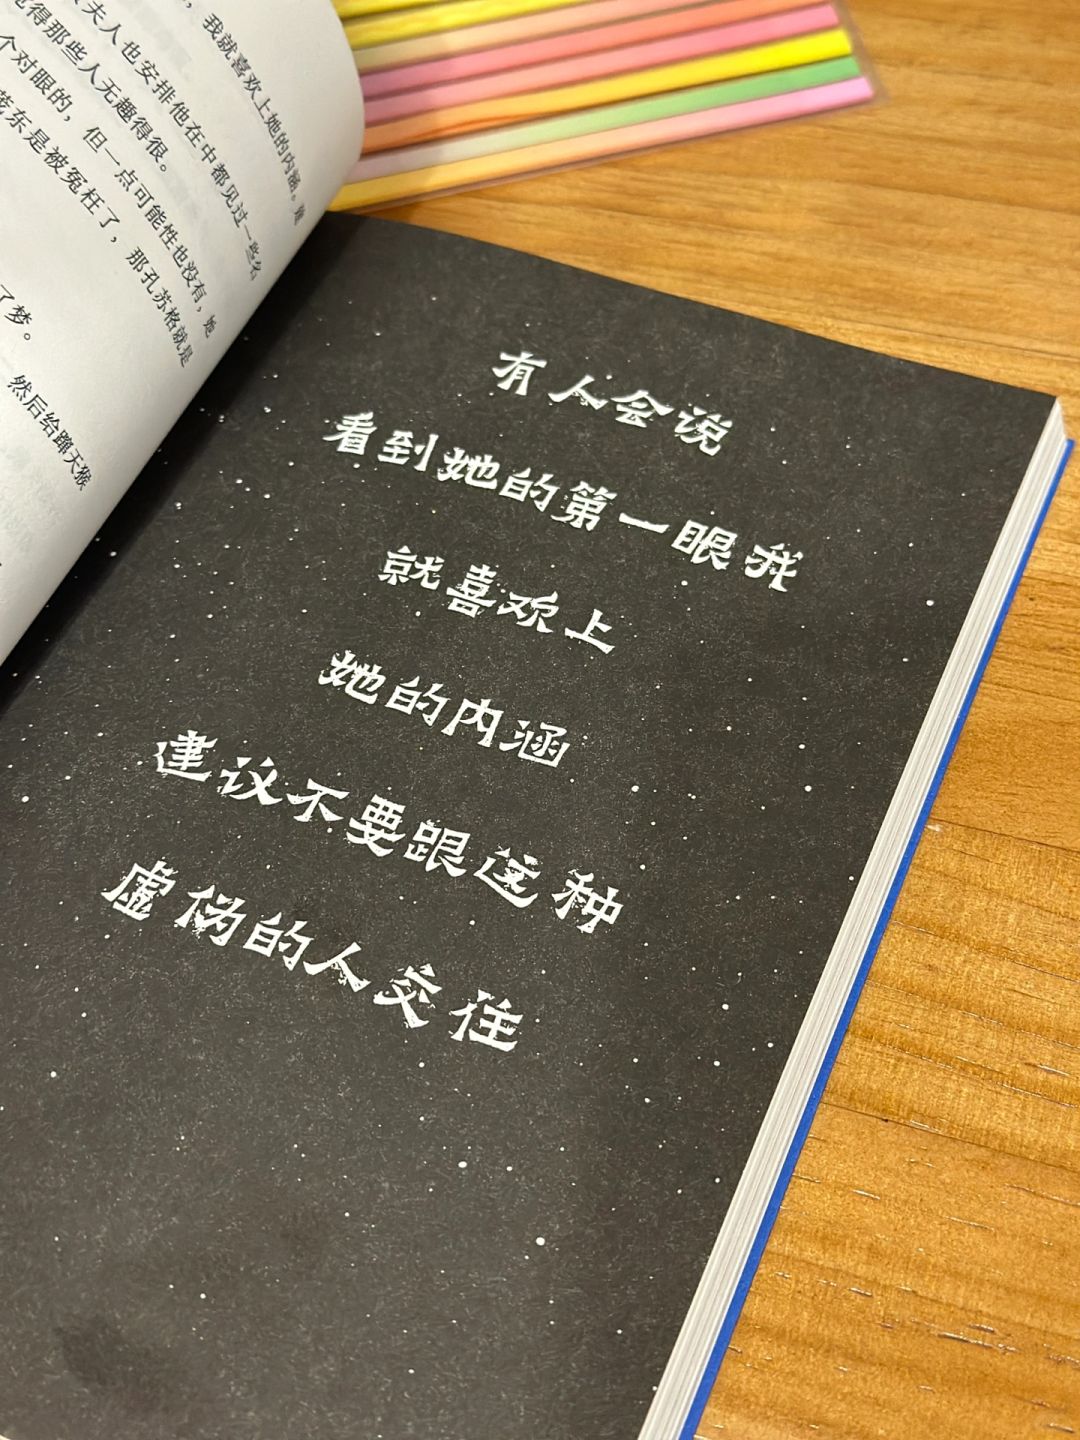 ，我就喜欢上她的内涵。她
夫人也安排他在中都见过一些名
得那些人无趣得很。
个对眼的，但一点可能性也没有，她
东是被冤枉了，那孔苏格就是
了梦。
然后给蹿天猴
有人会说
看到她的第一眼我
就喜欢上
她的内涵
建议不要跟这种
虚伪的人交往